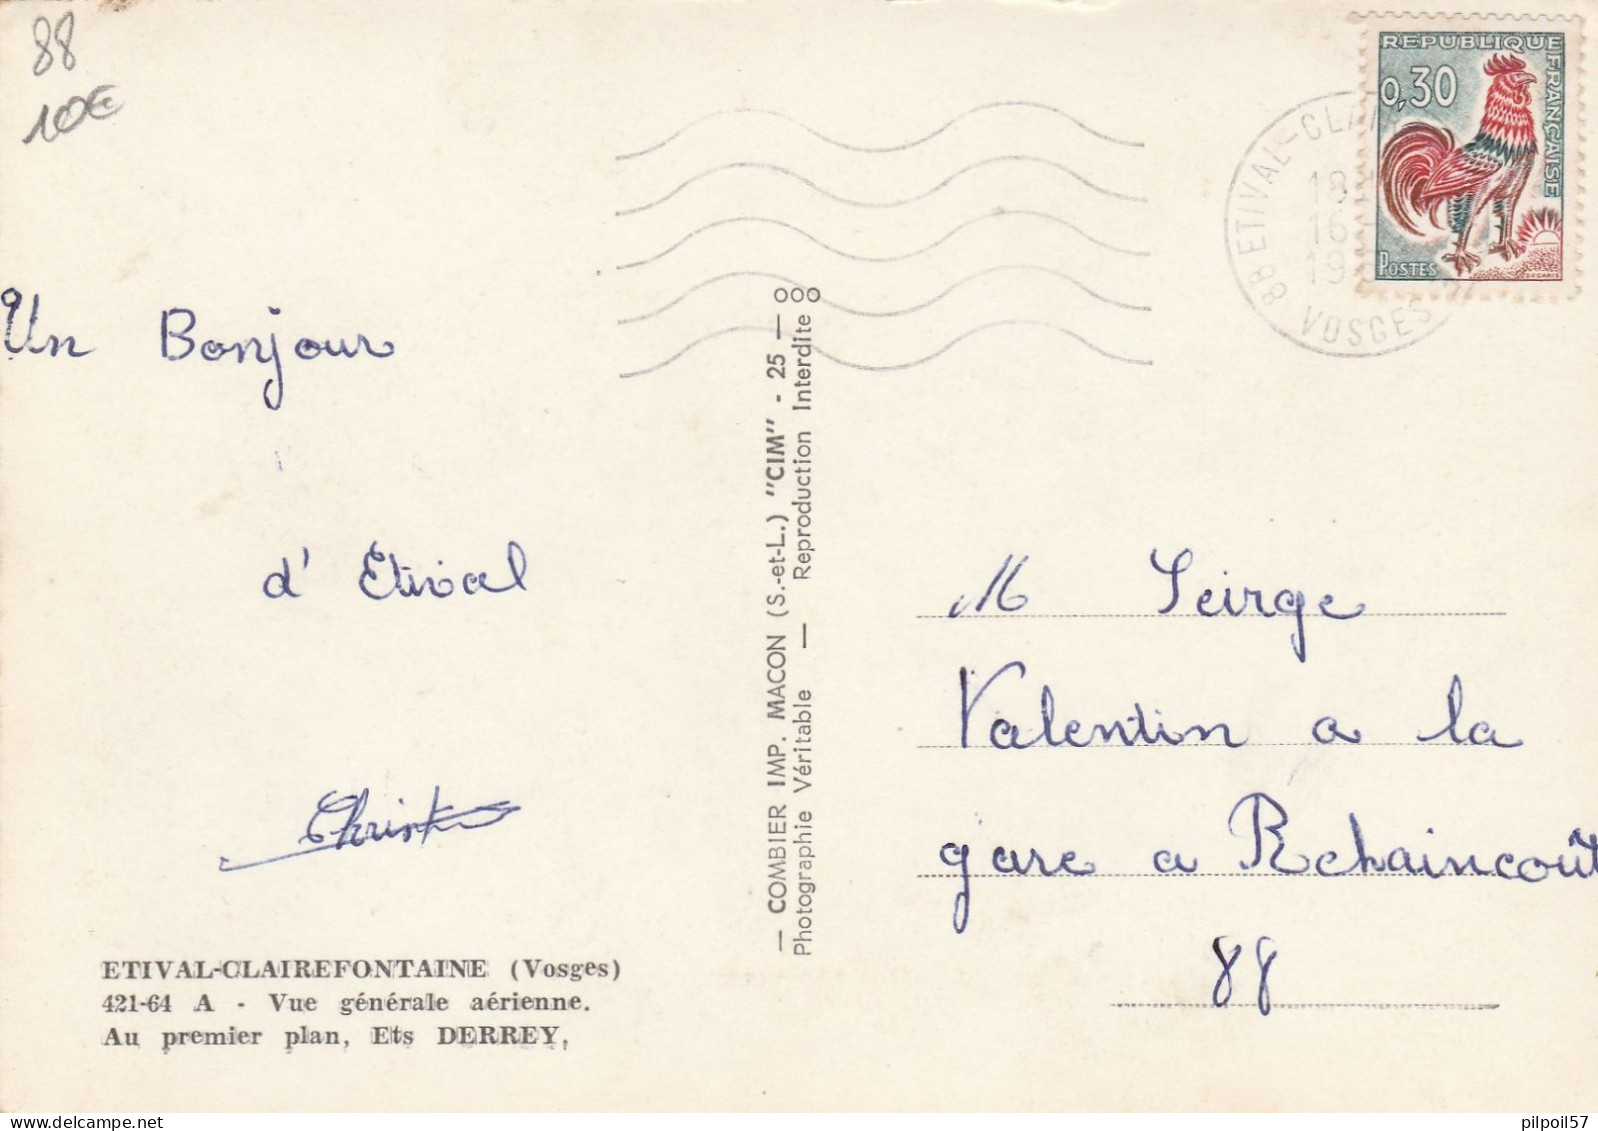 88
10€
REPUBLIQUE FRANÇAISE
0,30
POSTES
88 ETIVAL-CLAI
18
16
19
VOSGES
Un Bonjour
d' Etival
— COMBIER IMP. MACON (S.-et-L.) "CIM" - 25 —
Photographie Véritable — Reproduction Interdite
M Seirge
Valentin a la
gare a Rehaincoût
88
ETIVAL-CLAIREFONTAINE (Vosges)
421-64 A - Vue générale aérienne.
Au premier plan, Ets DERREY,
pilpoil57